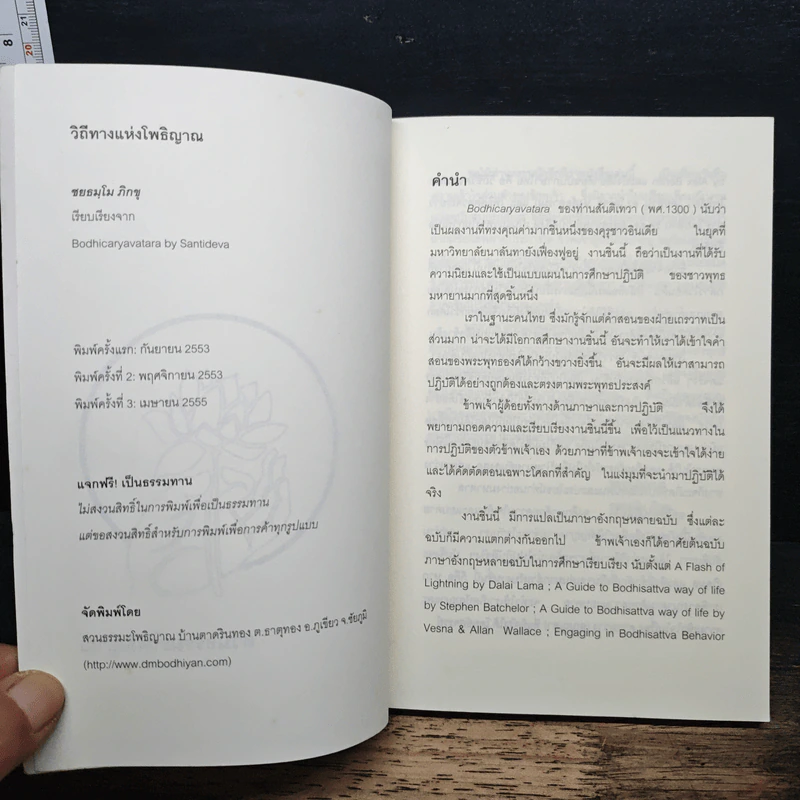 8
21
20
วิถีทางแห่งโพธิญาณ
ชยธมฺโม ภิกขุ
เรียบเรียงจาก
Bodhicaryavatara by Santideva
พิมพ์ครั้งแรก: กันยายน 2553
พิมพ์ครั้งที่ 2: พฤศจิกายน 2553
พิมพ์ครั้งที่ 3: เมษายน 2555
แจกฟรี! เป็นธรรมทาน
ไม่สงวนสิทธิ์ในการพิมพ์เพื่อเป็นธรรมทาน
แต่ขอสงวนสิทธิ์สำหรับการพิมพ์เพื่อการค้าทุกรูปแบบ
จัดพิมพ์โดย
สวนธรรมะโพธิญาณ บ้านตาดรินทอง ต.ธาตุทอง อ.ภูเขียว จ.ชัยภูมิ
(http://www.dmbodhiyan.com)
คำนำ
Bodhicaryavatara ของท่านสันติเทวา ( พศ.1300 ) นับว่า
เป็นผลงานที่ทรงคุณค่ามากชิ้นหนึ่งของคุรุชาวอินเดีย ในยุคที่
มหาวิทยาลัยนาลันทายังเฟื่องฟูอยู่ งานชิ้นนี้ ถือว่าเป็นงานที่ได้รับ
ความนิยมและใช้เป็นแบบแผนในการศึกษาปฏิบัติ ของชาวพุทธ
มหายานมากที่สุดชิ้นหนึ่ง
เราในฐานะคนไทย ซึ่งมักรู้จักแต่คำสอนของฝ่ายเถรวาทเป็น
ส่วนมาก น่าจะได้มีโอกาสศึกษางานชิ้นนี้ อันจะทำให้เราได้เข้าใจคำ
สอนของพระพุทธองค์ได้กว้างขวางยิ่งขึ้น อันจะมีผลให้เราสามารถ
ปฏิบัติได้อย่างถูกต้องและตรงตามพระพุทธประสงค์
ข้าพเจ้าผู้ด้อยทั้งทางด้านภาษาและการปฏิบัติ จึงได้
พยายามถอดความและเรียบเรียงงานชิ้นนี้ขึ้น เพื่อไว้เป็นแนวทางใน
การปฏิบัติของตัวข้าพเจ้าเอง ด้วยภาษาที่ข้าพเจ้าเองจะเข้าใจได้ง่าย
และได้คัดตัดตอนเฉพาะโศลกที่สำคัญ ในแง่มุมที่จะนำมาปฏิบัติได้
จริง
งานชิ้นนี้ มีการแปลเป็นภาษาอังกฤษหลายฉบับ ซึ่งแต่ละ
ฉบับก็มีความแตกต่างกันออกไป ข้าพเจ้าเองก็ได้อาศัยต้นฉบับ
ภาษาอังกฤษหลายฉบับในการศึกษาเรียบเรียง นับตั้งแต่ A Flash of
Lightning by Dalai Lama ; A Guide to Bodhisattva way of life
by Stephen Batchelor ; A Guide to Bodhisattva way of life by
Vesna & Allan Wallace ; Engaging in Bodhisattva Behavior